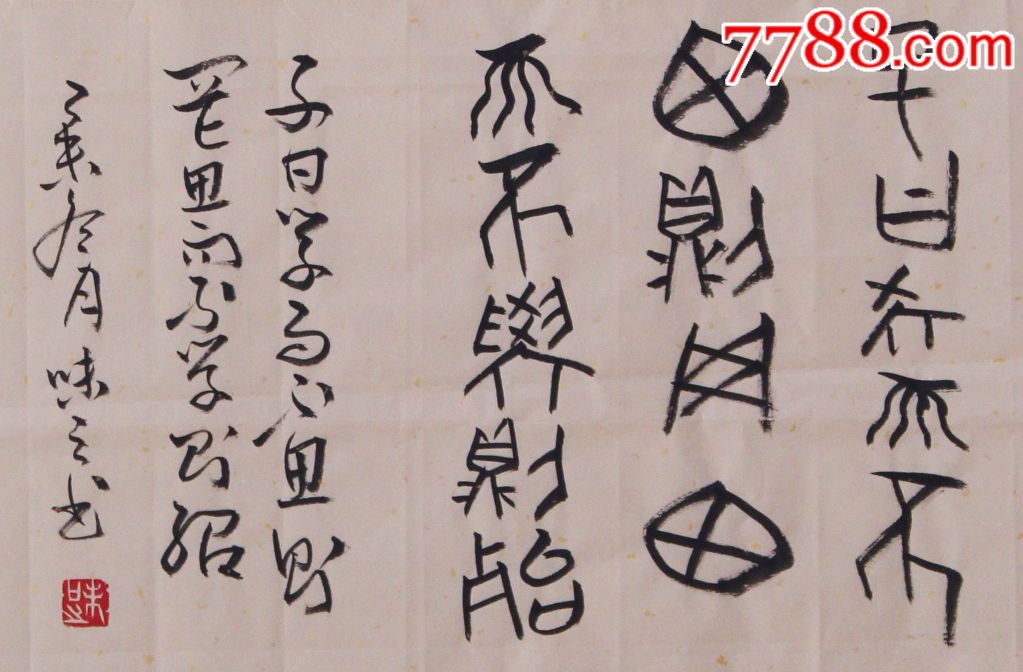 7788.com
子曰學而不
思則罔思
而不學則殆
子曰学而不思則
罔思而不学則殆
乙未冬月味之书
味之